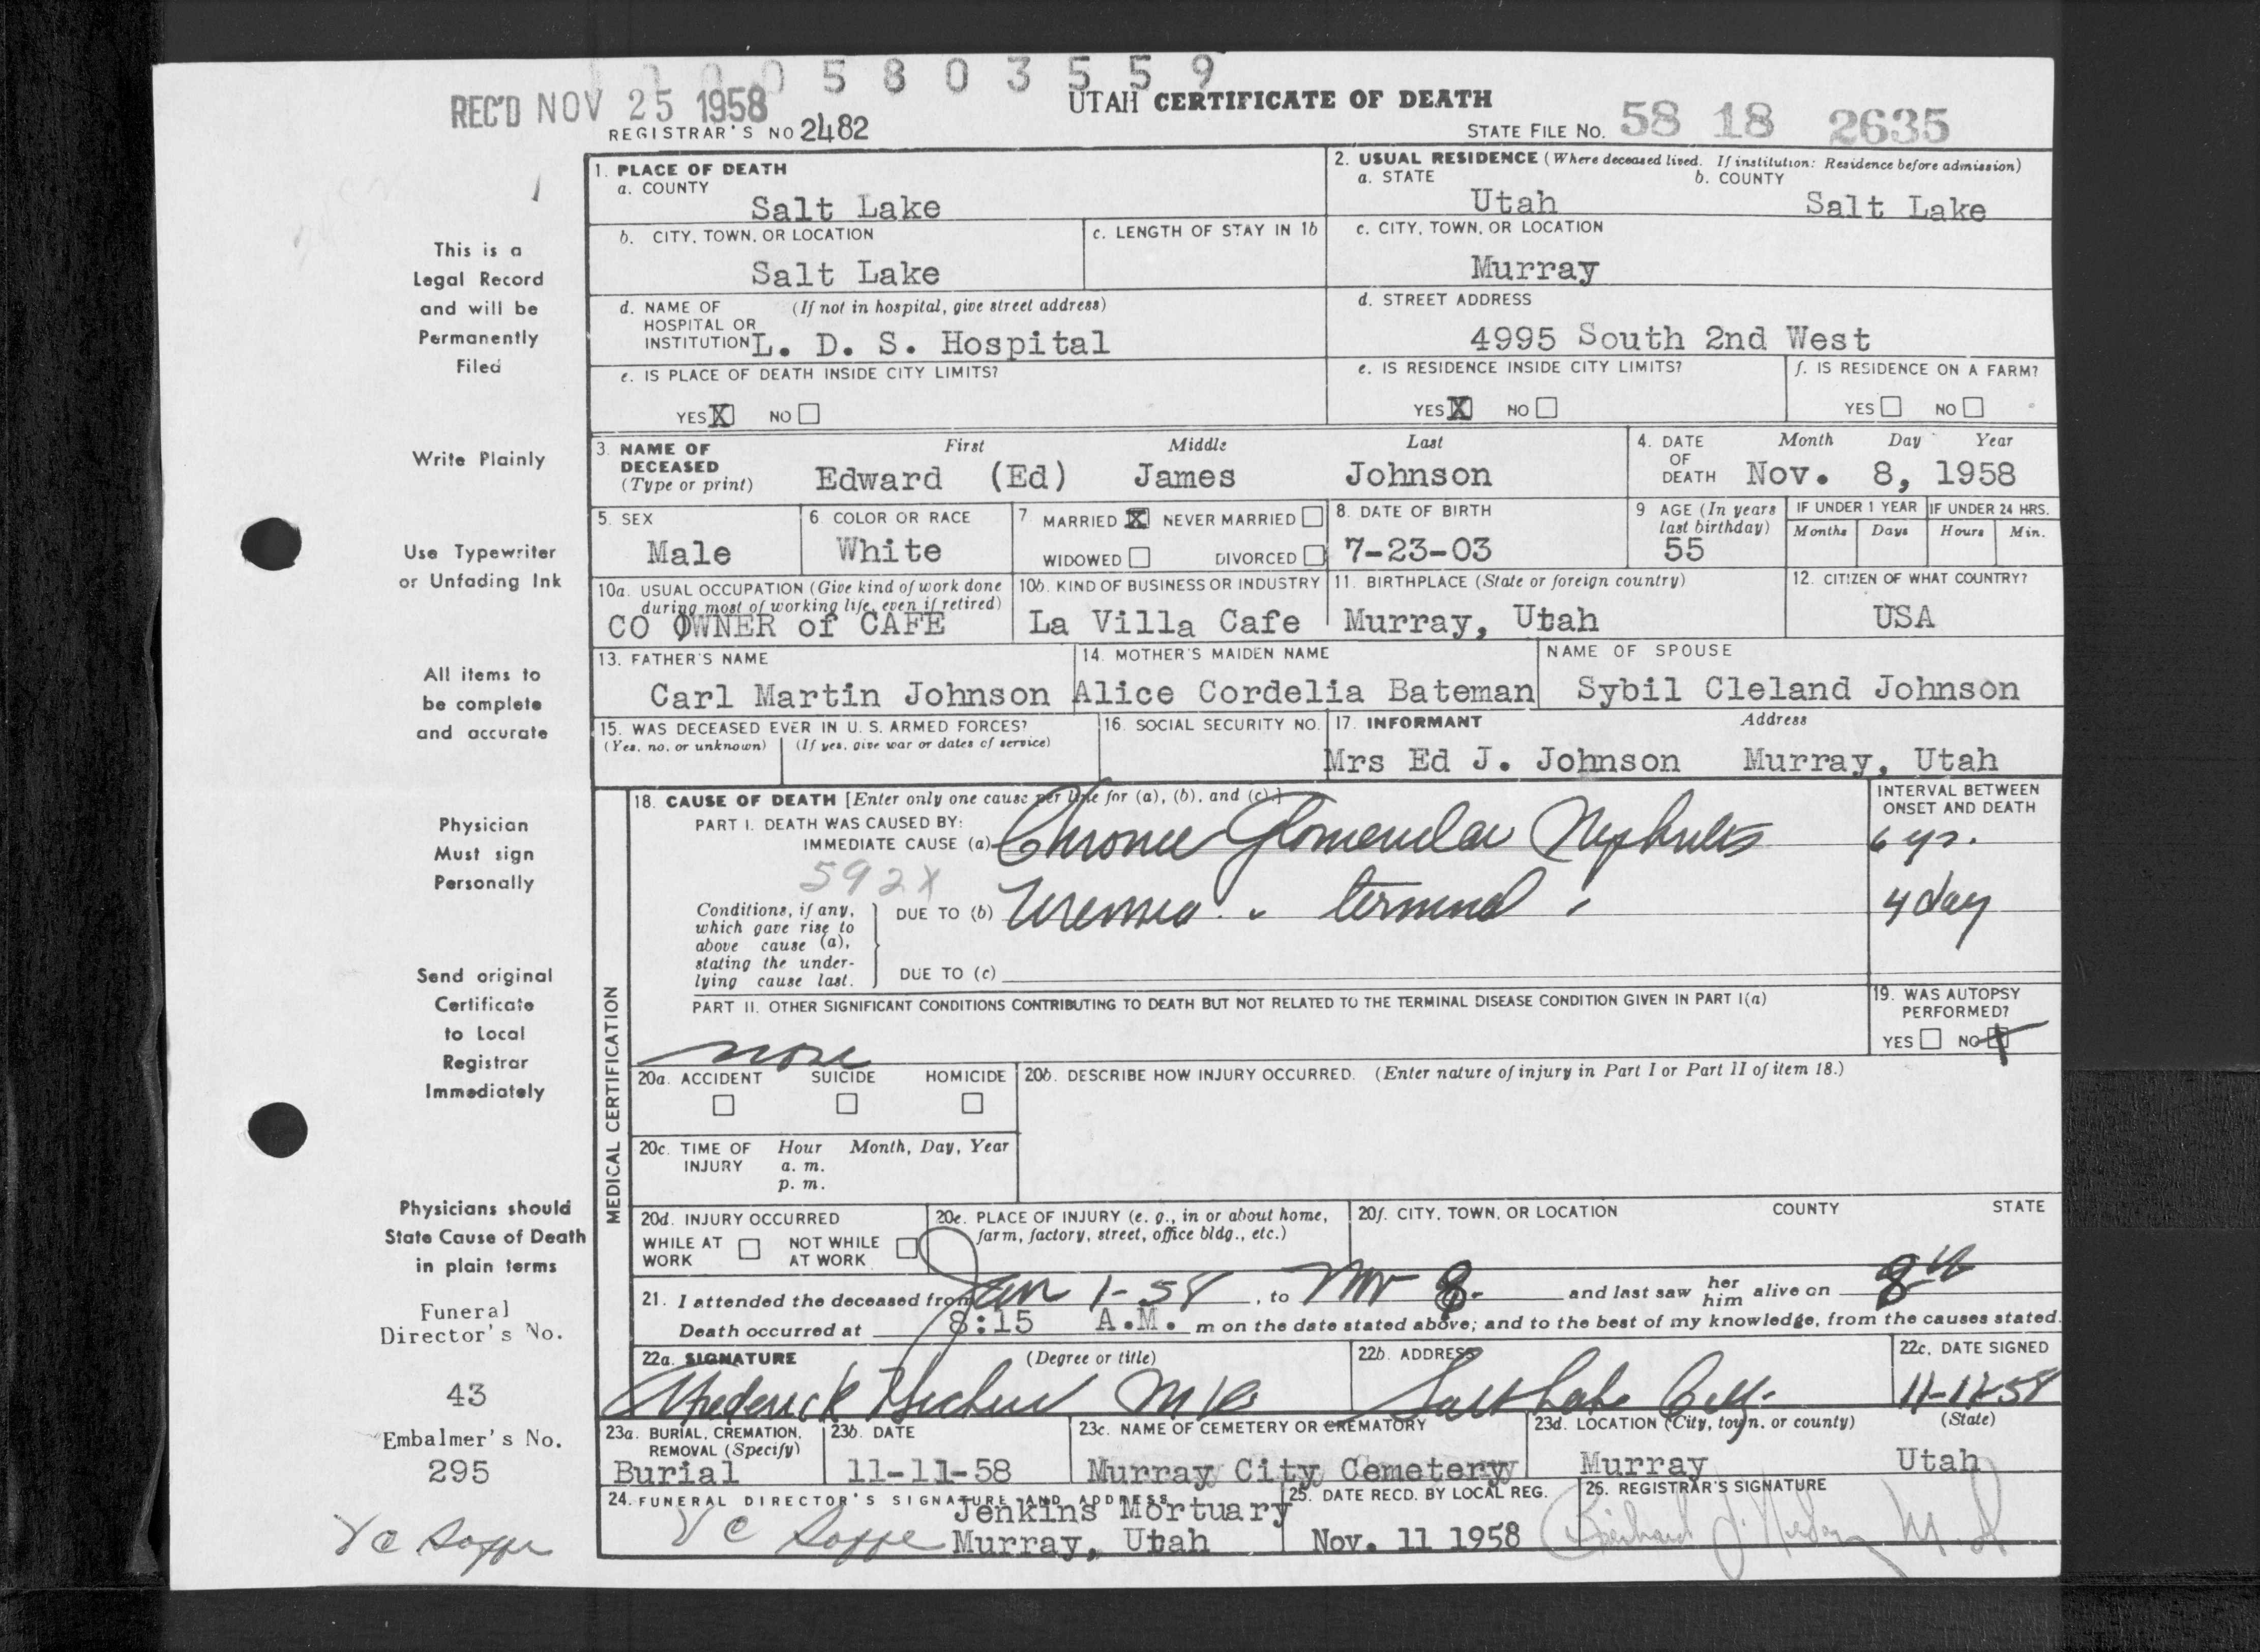 5 8 0 3 5 5 9
REC'D NOV 25 1958
UTAH CERTIFICATE OF DEATH
REGISTRAR'S NO 2482
STATE FILE NO. 58 18 2635
This is a
Legal Record
and will be
Permanently
Filed
Write Plainly
Use Typewriter
or Unfading Ink
All items to
be complete
and accurate
Physician
Must sign
Personally
Send original
Certificate
to Local
Registrar
Immediately
Physicians should
State Cause of Death
in plain terms
Funeral
Director's No.
43
Embalmer's No.
295
1. PLACE OF DEATH
a. COUNTY
Salt Lake
2. USUAL RESIDENCE (Where deceased lived. If institution: Residence before admission)
a. STATE b. COUNTY
Utah Salt Lake
b. CITY, TOWN, OR LOCATION
Salt Lake
c. LENGTH OF STAY IN 1b
c. CITY, TOWN, OR LOCATION
Murray
d. NAME OF (If not in hospital, give street address)
HOSPITAL OR
INSTITUTION L. D. S. Hospital
d. STREET ADDRESS
4995 South 2nd West
e. IS PLACE OF DEATH INSIDE CITY LIMITS?
YES X NO
e. IS RESIDENCE INSIDE CITY LIMITS?
YES X NO
f. IS RESIDENCE ON A FARM?
YES NO
3. NAME OF DECEASED (Type or print)
First Middle Last
Edward (Ed) James Johnson
4. DATE OF DEATH
Month Day Year
Nov. 8, 1958
5. SEX
Male
6. COLOR OR RACE
White
7. MARRIED X NEVER MARRIED
WIDOWED DIVORCED
8. DATE OF BIRTH
7-23-03
9 AGE (In years last birthday)
55
IF UNDER 1 YEAR
Months Days
IF UNDER 24 HRS.
Hours Min.
10a. USUAL OCCUPATION (Give kind of work done
during most of working life, even if retired)
CO OWNER of CAFE
10b. KIND OF BUSINESS OR INDUSTRY
La Villa Cafe
11. BIRTHPLACE (State or foreign country)
Murray, Utah
12. CITIZEN OF WHAT COUNTRY?
USA
13. FATHER'S NAME
Carl Martin Johnson
14. MOTHER'S MAIDEN NAME
Alice Cordelia Bateman
NAME OF SPOUSE
Sybil Cleland Johnson
15. WAS DECEASED EVER IN U. S. ARMED FORCES?
(Yes, no, or unknown) (If yes, give war or dates of service)
16. SOCIAL SECURITY NO.
17. INFORMANT Address
Mrs Ed J. Johnson Murray, Utah
MEDICAL CERTIFICATION
18. CAUSE OF DEATH [Enter only one cause per line for (a), (b), and (c).]
INTERVAL BETWEEN
ONSET AND DEATH
PART I. DEATH WAS CAUSED BY:
IMMEDIATE CAUSE (a) Chronic Glomerular Nephritis 6 yrs.
592X
Conditions, if any,
which gave rise to
above cause (a),
stating the under-
lying cause last.
DUE TO (b) Uremia - terminal 4 day
DUE TO (c)
PART II. OTHER SIGNIFICANT CONDITIONS CONTRIBUTING TO DEATH BUT NOT RELATED TO THE TERMINAL DISEASE CONDITION GIVEN IN PART I(a)
none
19. WAS AUTOPSY
PERFORMED?
YES NO X
20a. ACCIDENT SUICIDE HOMICIDE
20b. DESCRIBE HOW INJURY OCCURRED. (Enter nature of injury in Part I or Part II of item 18.)
20c. TIME OF INJURY
Hour Month, Day, Year
a. m.
p. m.
20d. INJURY OCCURRED
WHILE AT WORK
NOT WHILE AT WORK
20e. PLACE OF INJURY (e. g., in or about home,
farm, factory, street, office bldg., etc.)
20f. CITY, TOWN, OR LOCATION COUNTY STATE
21. I attended the deceased from Jan 1-58, to Nov 8- and last saw her him alive on 8th
Death occurred at 8:15 A.M. m on the date stated above; and to the best of my knowledge, from the causes stated.
22a. SIGNATURE (Degree or title)
Frederick
22b. ADDRESS
Salt Lake City
22c. DATE SIGNED
11-11-58
23a. BURIAL, CREMATION,
REMOVAL (Specify)
Burial
23b. DATE
11-11-58
23c. NAME OF CEMETERY OR CREMATORY
Murray City Cemetery
23d. LOCATION (City, town, or county) (State)
Murray Utah
24. FUNERAL DIRECTOR'S SIGNATURE AND ADDRESS
Jenkins Mortuary
Murray, Utah
25. DATE RECD. BY LOCAL REG.
Nov. 11 1958
26. REGISTRAR'S SIGNATURE